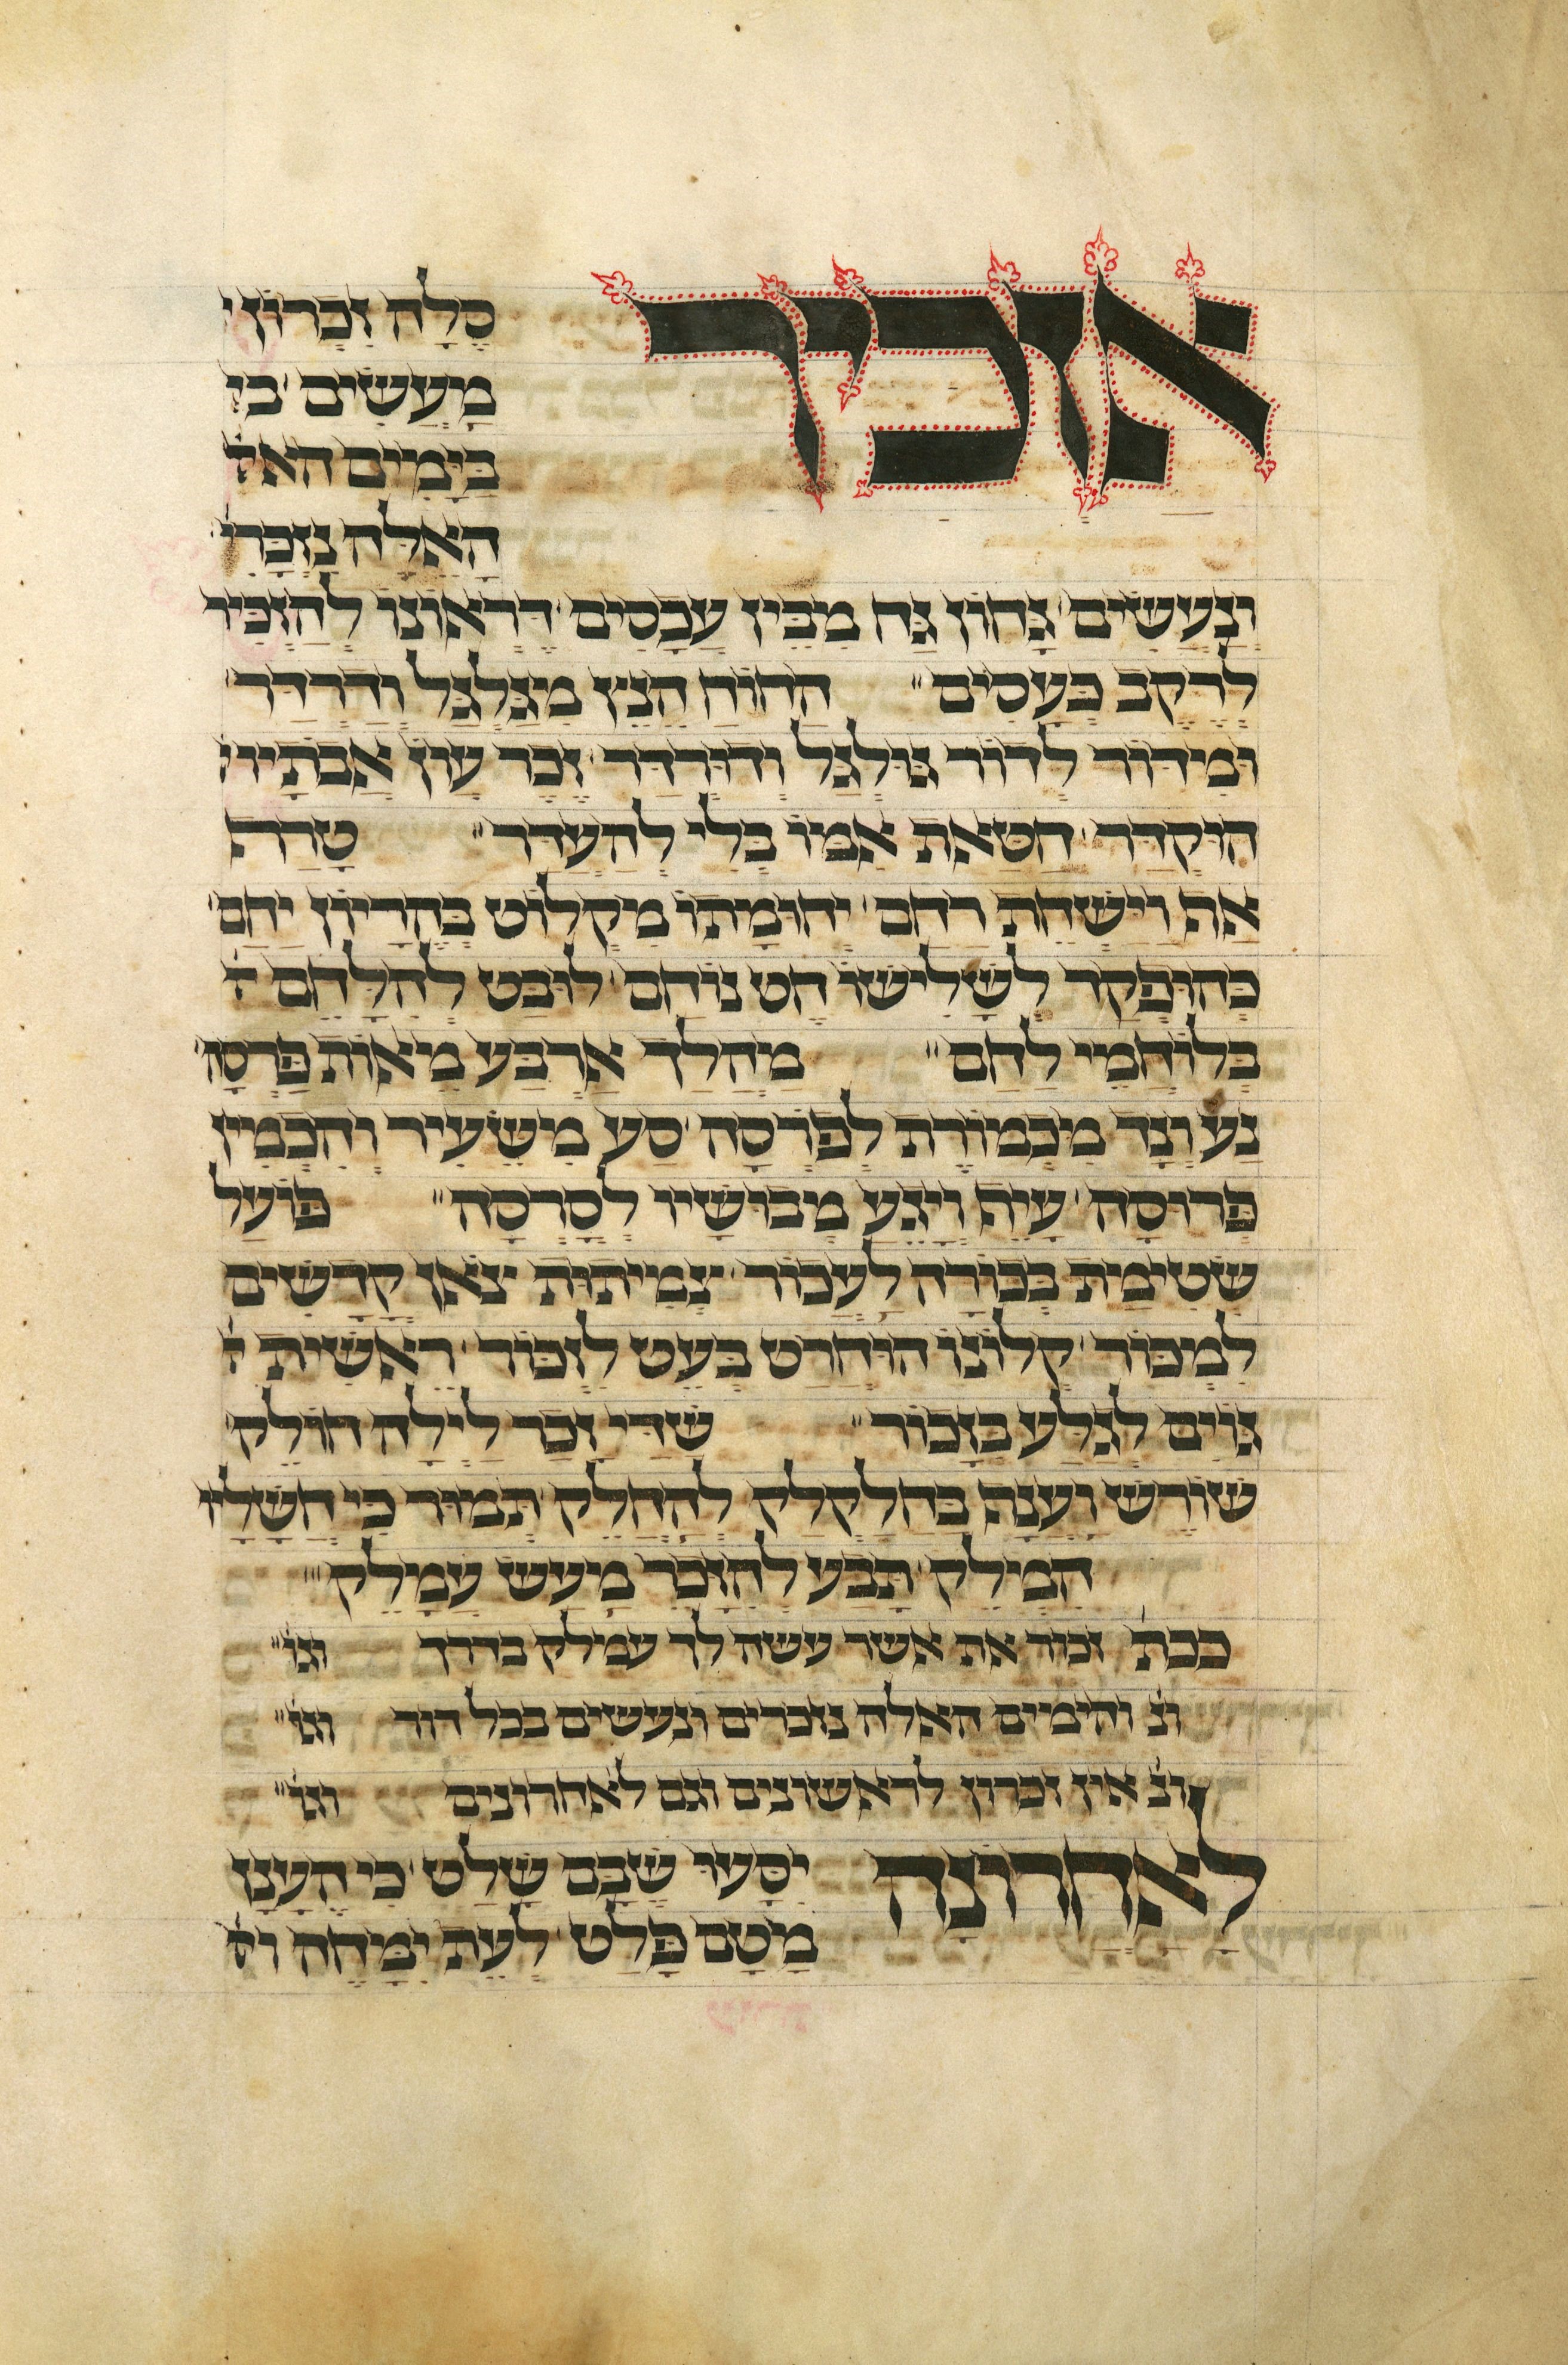 אזכיר
סֶלָה זִכְרוֹן
מַעֲשִׂים כִּי
בַּיָּמִים הא
הָאֵלֶּה נִזְכָּרִ
וְנַעֲשִׂים נָחוֹן נַּח מִבֵּין עֲכָסִים דֵּרְאוֹנוֹ לְהַזְכִּיר
לְרֶקֶב בְּעָסִים החוֹחַ הֵנֵץ מִגַּלְגַּל וְדַרְדַּר
וּמִדּוֹר לְדוֹר גּוּלְגַּל וְדוּרְדַּר זֵכֶר עֲוֹן אֲבֹתָיו
הוּקְדַּר חַטַּאת אִמּוֹ בְּלִי לְהֵעָדֵר טָרַח
אַח וַיְּשַׁחֵת רַחַם יְחוּמָתוֹ מִקְלוֹט בְּהֵרָיוֹן יָחַם
כְּהוּפְקַד לְשָׁלִישׁוֹ חֵט נוֹחַם לוּבַּט לְהִלָּחֵם
בְּלוֹחֲמֵי לַחַם מַהֲלַךְ אַרְבַּע מֵאוֹת פַּרְסָה
נַע וָנָד מִכְמוֹרֶת לְפוֹרְסָה סַע מִשֵּׂעִיר וְהִכְמִין
פְּרוּסָה עָיֵף וְיָגֵעַ מְבוּשָׁיו לְסָרְסָה פּוֹעַל
שְׂטִימַת בְּכוֹרָה לַעֲכוֹר צְמִיתוּת צֹאן קָדָשִׁים
לִמְכּוֹר קְלוֹנוֹ הוּחְרַט בְּעֵט לִזְכּוֹר רֵאשִׁית
גּוֹיִם לְגַלַּע בְּזָכוֹר שָׂדַי זָכַר לַיְלָה חוֹלֵק
שׁוֹרֶשׁ וְעָנָף בַּחֲלַקְלַק לְהֵחָלֵק תְּמוּר כִּי חֲשָׁלָיו
הִמְלֵק תָּבַע לְהִזָּכֵר מַעַשׂ עֲמָלֵק
ככת׳ זכור את אשר עשה לך עמלק בדרך וגו׳
ונ׳ והימים האלה נזכרים ונעשים בכל דור וגו׳
ונ׳ אין זכרון לראשונים וגם לאחרונים וגו׳
לָאַחֲרוֹנָה יִסָּעוּ שֶׁבָּם שָׁלַט כִּי הֶעָנָן
מִטָּם פָּלַט לְעֵת יִמָּחֶה